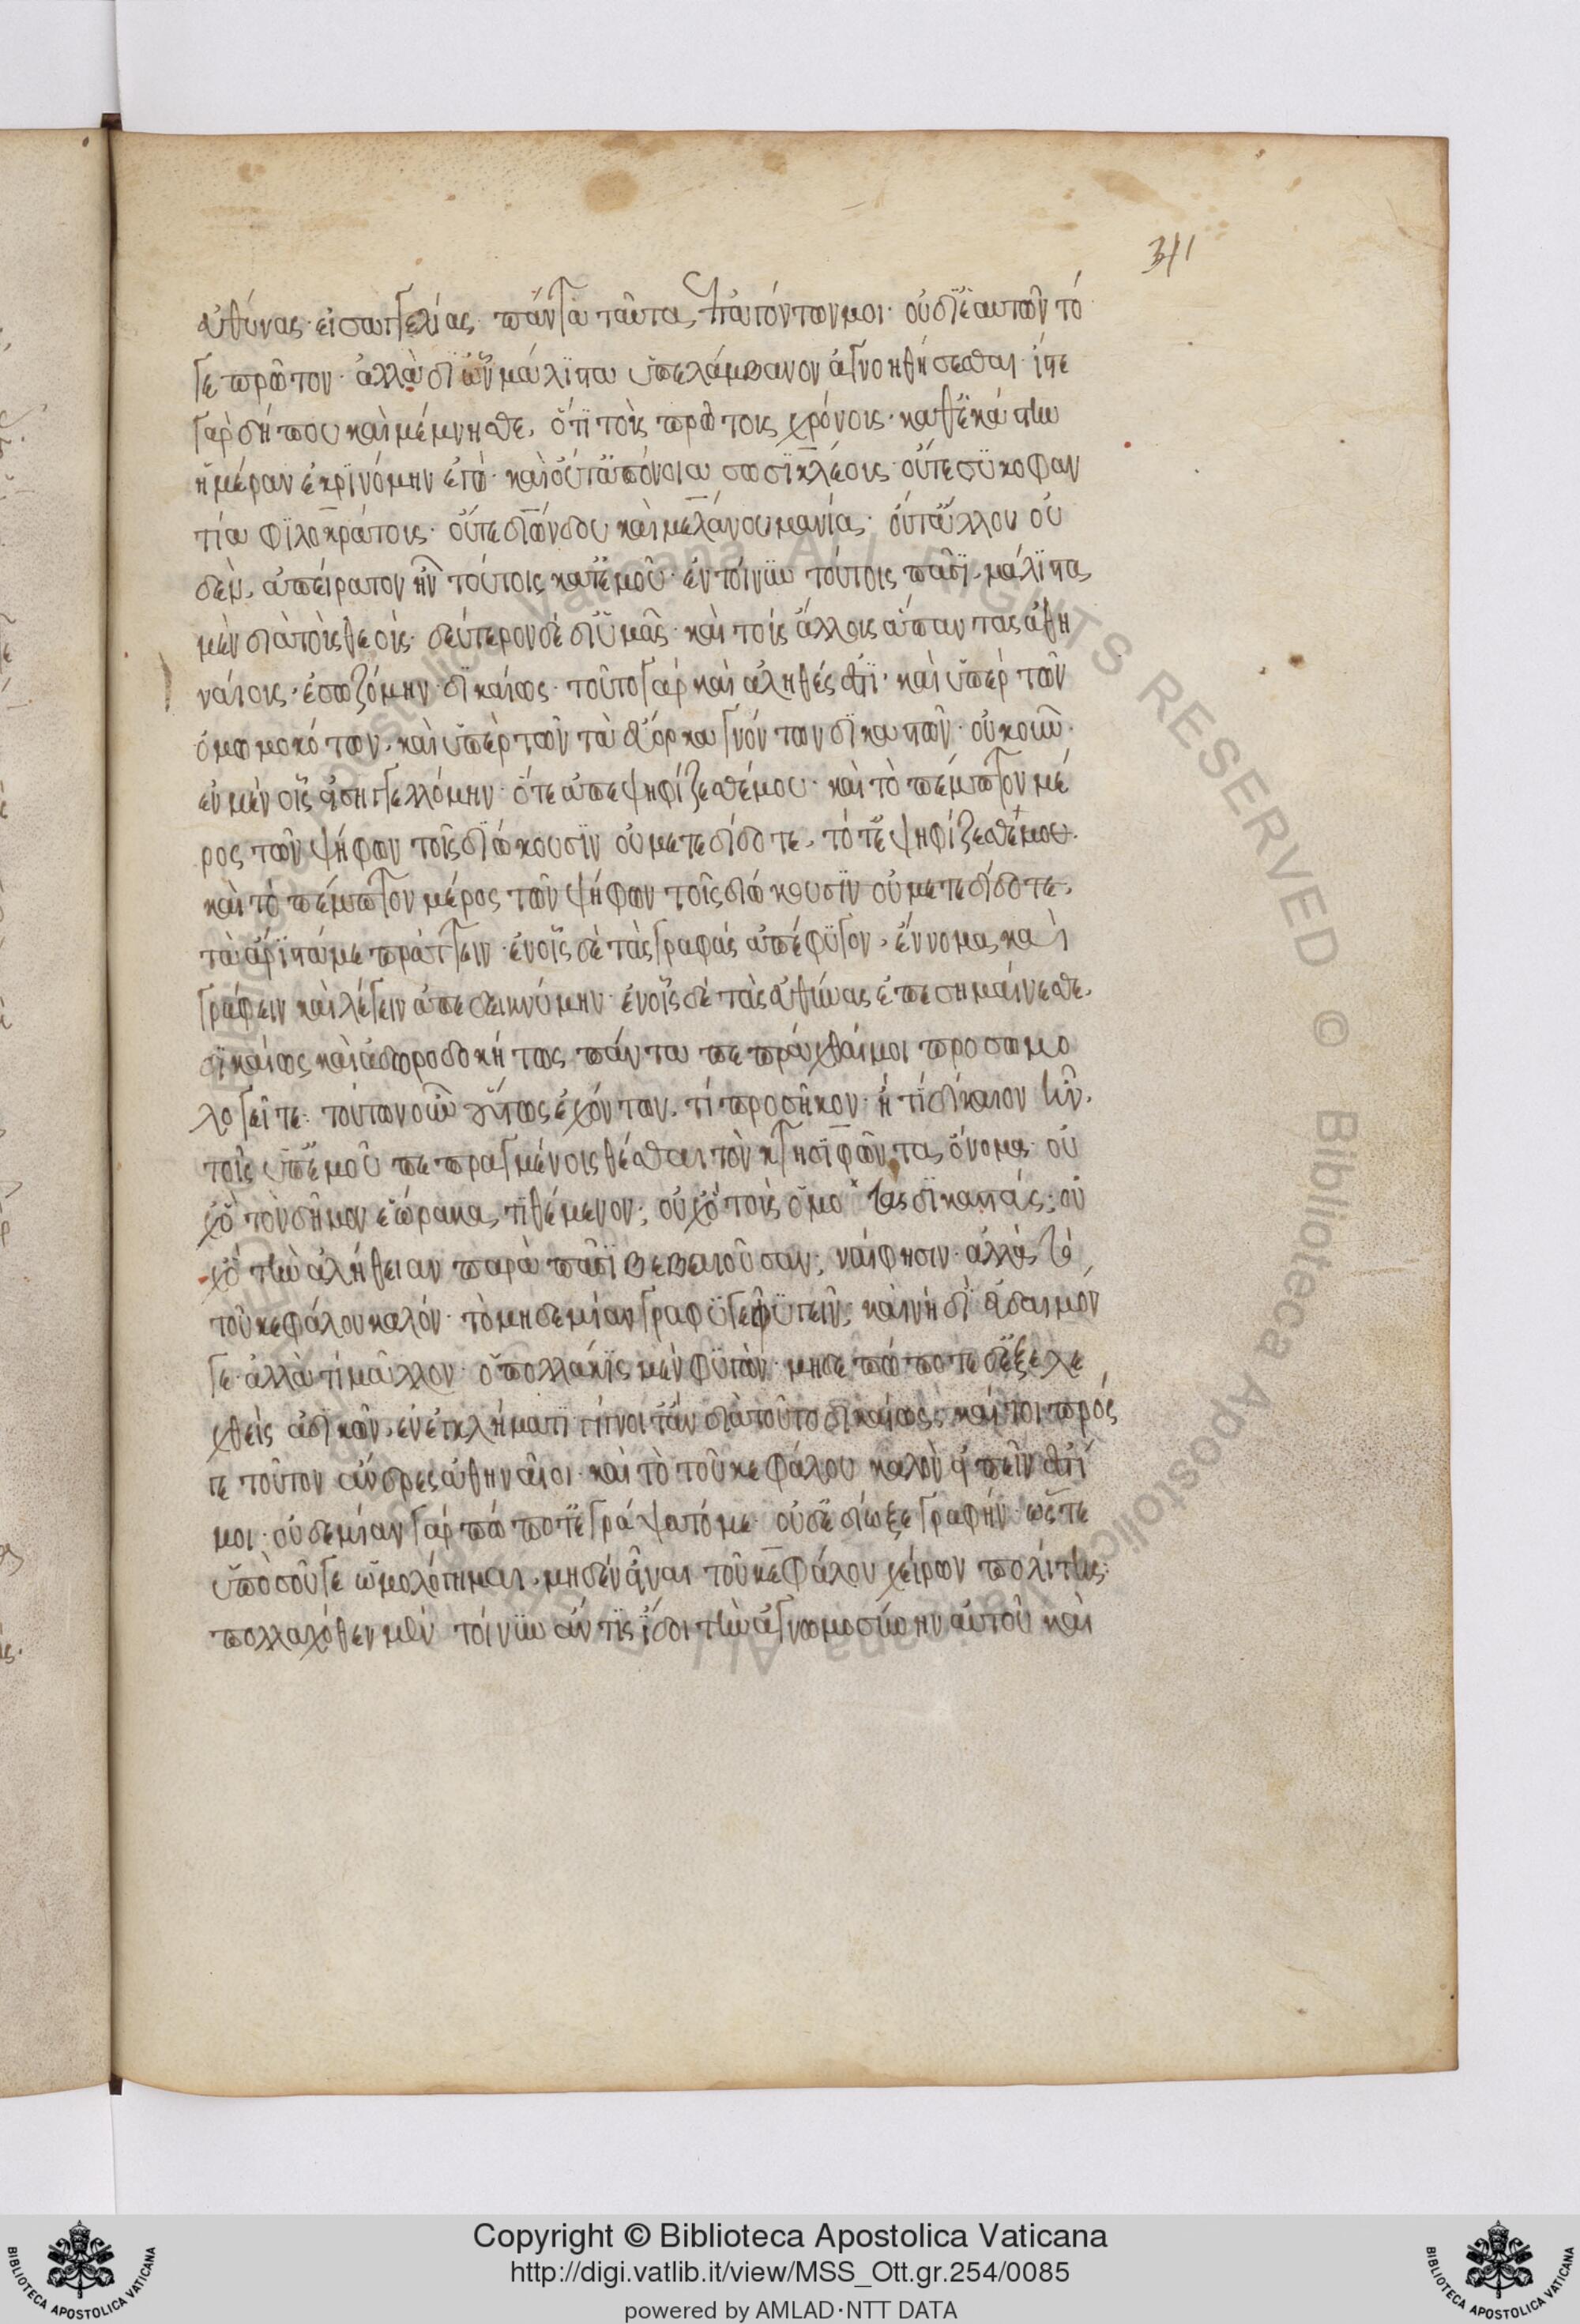 341
εὐθύνας· εἰσαγγελίας· πάντα ταῦτα ἐπαγόντων μοι· οὐ δι' ἑαυτῶν τό
γε πρῶτον· ἀλλὰ δι' ὧν μάλιστα ὑπελάμβανον ἀγνοηθήσεσθαι· ἴστε
γὰρ δήπου καὶ μέμνησθε, ὅτι τοὺς πρώτους χρόνους· καθ' ἑκάστην
ἡμέραν ἐκρινόμην ἐγώ· καὶ οὔτ' ἀπόνοια σωσικλέους· οὔτε συκοφαν
τία φιλοκράτους· οὔτε διώνδου καὶ μελάνου μανία· οὔτ' ἄλλου οὐ
δὲν, ἀπείρατον ἦν τούτοις κατ' ἐμοῦ· ἐν τοίνυν τούτοις πᾶσι, μάλιστα
μὲν διὰ τοὺς θεοὺς· δεύτερον δὲ δι' ὑμᾶς· καὶ τοὺς ἄλλους ἅπαντας ἀθη
ναίους· ἐσωζόμην· δικαίως· τοῦτο γὰρ καὶ ἀληθές ἐστι· καὶ ὑπὲρ τῶν
ὀμωμοκότων, καὶ ὑπὲρ τῶν τὰ εὔορκα γνόντων δικαστῶν· οὐκοῦν·
ἐν μὲν οἷς εἰσηγγελλόμην· ὅτε ἀπεψηφίζεσθέ μου· καὶ τὸ πέμπτον μέ
ρος τῶν ψήφων τοῖς διώκουσιν οὐ μετεδίδοτε, τότ' ἐψηφίζεσθέ μου·
καὶ τὸ πέμπτον μέρος τῶν ψήφων τοῖς διώκουσιν οὐ μετεδίδοτε,
τὰ ἄριστά με πράττειν· ἐν οἷς δὲ τὰς γραφὰς ἀπέφυγον, ἔννομα καὶ
γράφειν καὶ λέγειν ἀπεδεικνύμην· ἐν οἷς δὲ τὰς εὐθύνας ἐπεσημαίνεσθε,
δικαίως καὶ ἀδωροδοκήτως πάντα πεπράχθαι μοι προσωμο
λογεῖτε· τούτων οὖν οὕτως ἐχόντων, τί προσῆκον· ἢ τί δίκαιον ἦν,
τοῖς ὑπ' ἐμοῦ πεπραγμένοις θέσθαι τὸν κτησιφῶντα, ὄνομα· οὐ
χ' ὃ τὸν δῆμον ἑώρακα, τιθέμενον; οὐχ' ὃ τοὺς ὀμο τας δικαστάς; οὐ
χ' ὃ τὴν ἀλήθειαν παρὰ πᾶσι βεβαιοῦσαν; ναί φησιν· ἀλλὰ τὸ
τοῦ κεφάλου καλόν· τὸ μηδεμίαν γραφ φυγεῖν; καὶ νὴ δί' εὔδαιμόν
γε· ἀλλὰ τί μᾶλλον· ὁ πολλάκις μὲν φυγὼν· μηδεπώποτε δ' ἐξελε
χθεὶς ἀδικῶν, ἐν ἐγκλήματι γίγνοιτ' ἂν διὰ τοῦτο δικαίως; καίτοι πρός
γε τοῦτον ἄνδρες ἀθηναῖοι· καὶ τὸ τοῦ κεφάλου καλὸν εἰπεῖν ἐστί
μοι· οὐδεμίαν γὰρ πώποτ' ἐγράψατό με· οὐδ' ἐδίωξε γραφήν· ὥστε
ὑπὸ σοῦ γε ὡμολόγημαι, μηδὲν εἶναι τοῦ κεφάλου χείρων πολίτης·
πολλαχόθεν μὲν τοίνυν ἄν τις ἴδοι τὴν ἀγνωμοσύνην αὐτοῦ καὶ
Copyright © Biblioteca Apostolica Vaticana
http://digi.vatlib.it/view/MSS_Ott.gr.254/0085
powered by AMLAD·NTT DATA